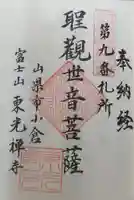 奉納経
第九番札所
聖觀世音菩薩
山県市小倉
富士山東光禅寺